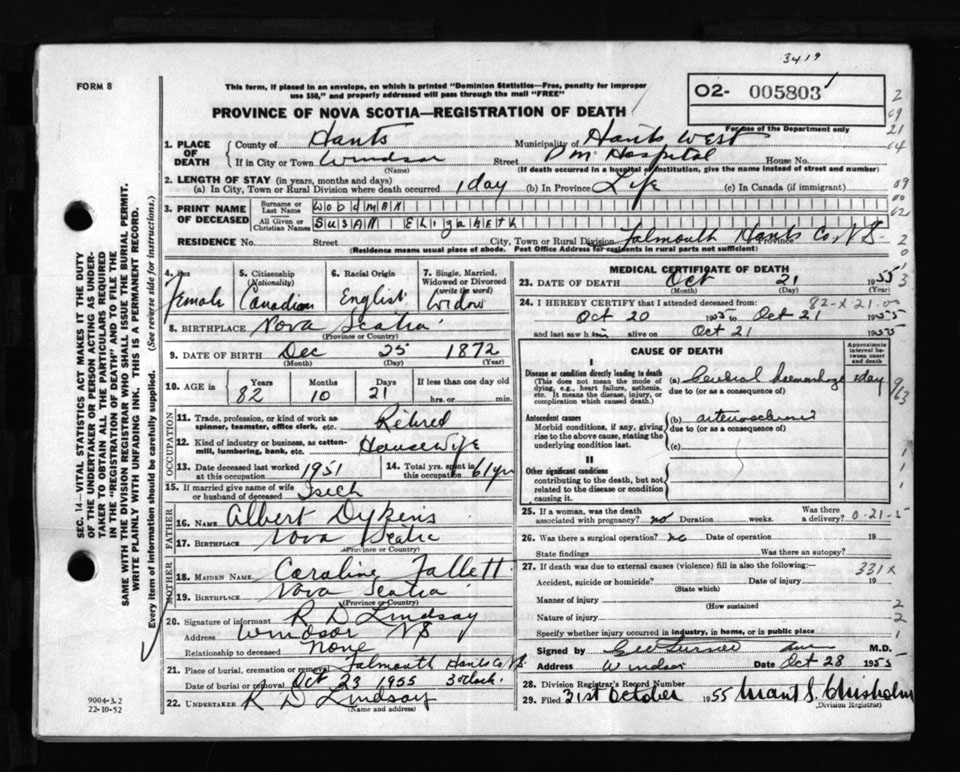 3419
FORM 8
This form, if placed in an envelope, on which is printed "Dominion Statistics—Free, penalty for improper use $50," and properly addressed will pass through the mail "FREE"
PROVINCE OF NOVA SCOTIA—REGISTRATION OF DEATH
02- 005803
For use of the Department only
1. PLACE OF DEATH
County of Hants Municipality of Hants West
If in City or Town Windsor Street Hospital House No.
(Name) (If death occurred in a hospital or institution, give the name instead of street and number)
2. LENGTH OF STAY (in years, months and days)
(a) In City, Town or Rural Division where death occurred 1 day (b) In Province Life (c) In Canada (if immigrant)
3. PRINT NAME OF DECEASED
Surname or Last Name Woodman
All Given or Christian Names Susan Elizabeth
RESIDENCE No. Street City, Town or Rural Division Falmouth Hants Co. N.S. Province
(Residence means usual place of abode. Post Office Address for residents in rural parts not sufficient)
4. Sex Female
5. Citizenship (Nationality) Canadian
6. Racial Origin English
7. Single, Married, Widowed or Divorced (write the word) Widow
8. BIRTHPLACE Nova Scotia
(Province or Country)
9. DATE OF BIRTH Dec 25 1872
(Month) (Day) (Year)
10. AGE in Years Months Days If less than one day old
82 10 21 hrs. or min.
OCCUPATION
11. Trade, profession, or kind of work as spinner, teamster, office clerk, etc. Retired
12. Kind of industry or business, as cotton-mill, lumbering, bank, etc. Housewife
13. Date deceased last worked at this occupation 1951
14. Total yrs. spent in this occupation 61 yrs
15. If married give name of wife or husband of deceased
FATHER
16. NAME Albert Dykens
17. BIRTHPLACE Nova Scotia
(Province or Country)
MOTHER
18. MAIDEN NAME Caroline
19. BIRTHPLACE Nova Scotia
(Province or Country)
20. Signature of informant R D Lindsay
Address Windsor NS
Relationship to deceased None
21. Place of burial, cremation or removal Falmouth Hants Co. N.S.
Date of burial or removal Oct 23 1955 3 o'clock.
22. UNDERTAKER R D Lindsay
(Name and address)
9004-3.2
22-10-52
MEDICAL CERTIFICATE OF DEATH
23. DATE OF DEATH Oct 21 1955
(Month) (Day) (Year)
24. I HEREBY CERTIFY that I attended deceased from:
82-X 21.0
Oct 20 1955 to Oct 21 1955
and last saw h alive on Oct 21 1955
CAUSE OF DEATH
Approximate interval between onset and death
I
Disease or condition directly leading to death (This does not mean the mode of dying, e.g., heart failure, asthenia, etc. It means the disease, injury, or complication which caused death.)
(a) Cerebral haemorrhage 1 day
due to (or as a consequence of)
Antecedent causes
Morbid conditions, if any, giving rise to the above cause, stating the underlying condition last.
(b) arteriosclerosis
due to (or as a consequence of)
(c)
II
Other significant conditions contributing to the death, but not related to the disease or condition causing it.
25. If a woman, was the death associated with pregnancy? no Duration weeks. Was there a delivery? 0-21-5
26. Was there a surgical operation? no Date of operation 19
State findings Was there an autopsy?
27. If death was due to external causes (violence) fill in also the following:— 331X
Accident, suicide or homicide? Date of injury 19
(State which)
Manner of injury
(How sustained
Nature of injury
Specify whether injury occurred in industry, in home, or in public place
Signed by Geo Turner M.D.
Address Windsor Date Oct 28 1955
28. Division Registrar's Record Number
29. Filed 31st October 1955 Grant S. Chisholm
(Division Registrar)
SEC. 14—VITAL STATISTICS ACT MAKES IT THE DUTY OF THE UNDERTAKER OR PERSON ACTING AS UNDERTAKER TO OBTAIN ALL THE PARTICULARS REQUIRED IN THE "REGISTRATION OF DEATH" AND TO FILE THE SAME WITH THE DIVISION REGISTRAR WHO SHALL ISSUE THE BURIAL PERMIT.
WRITE PLAINLY WITH UNFADING INK. THIS IS A PERMANENT RECORD.
Every item of information should be carefully supplied. (See reverse side for instructions.)